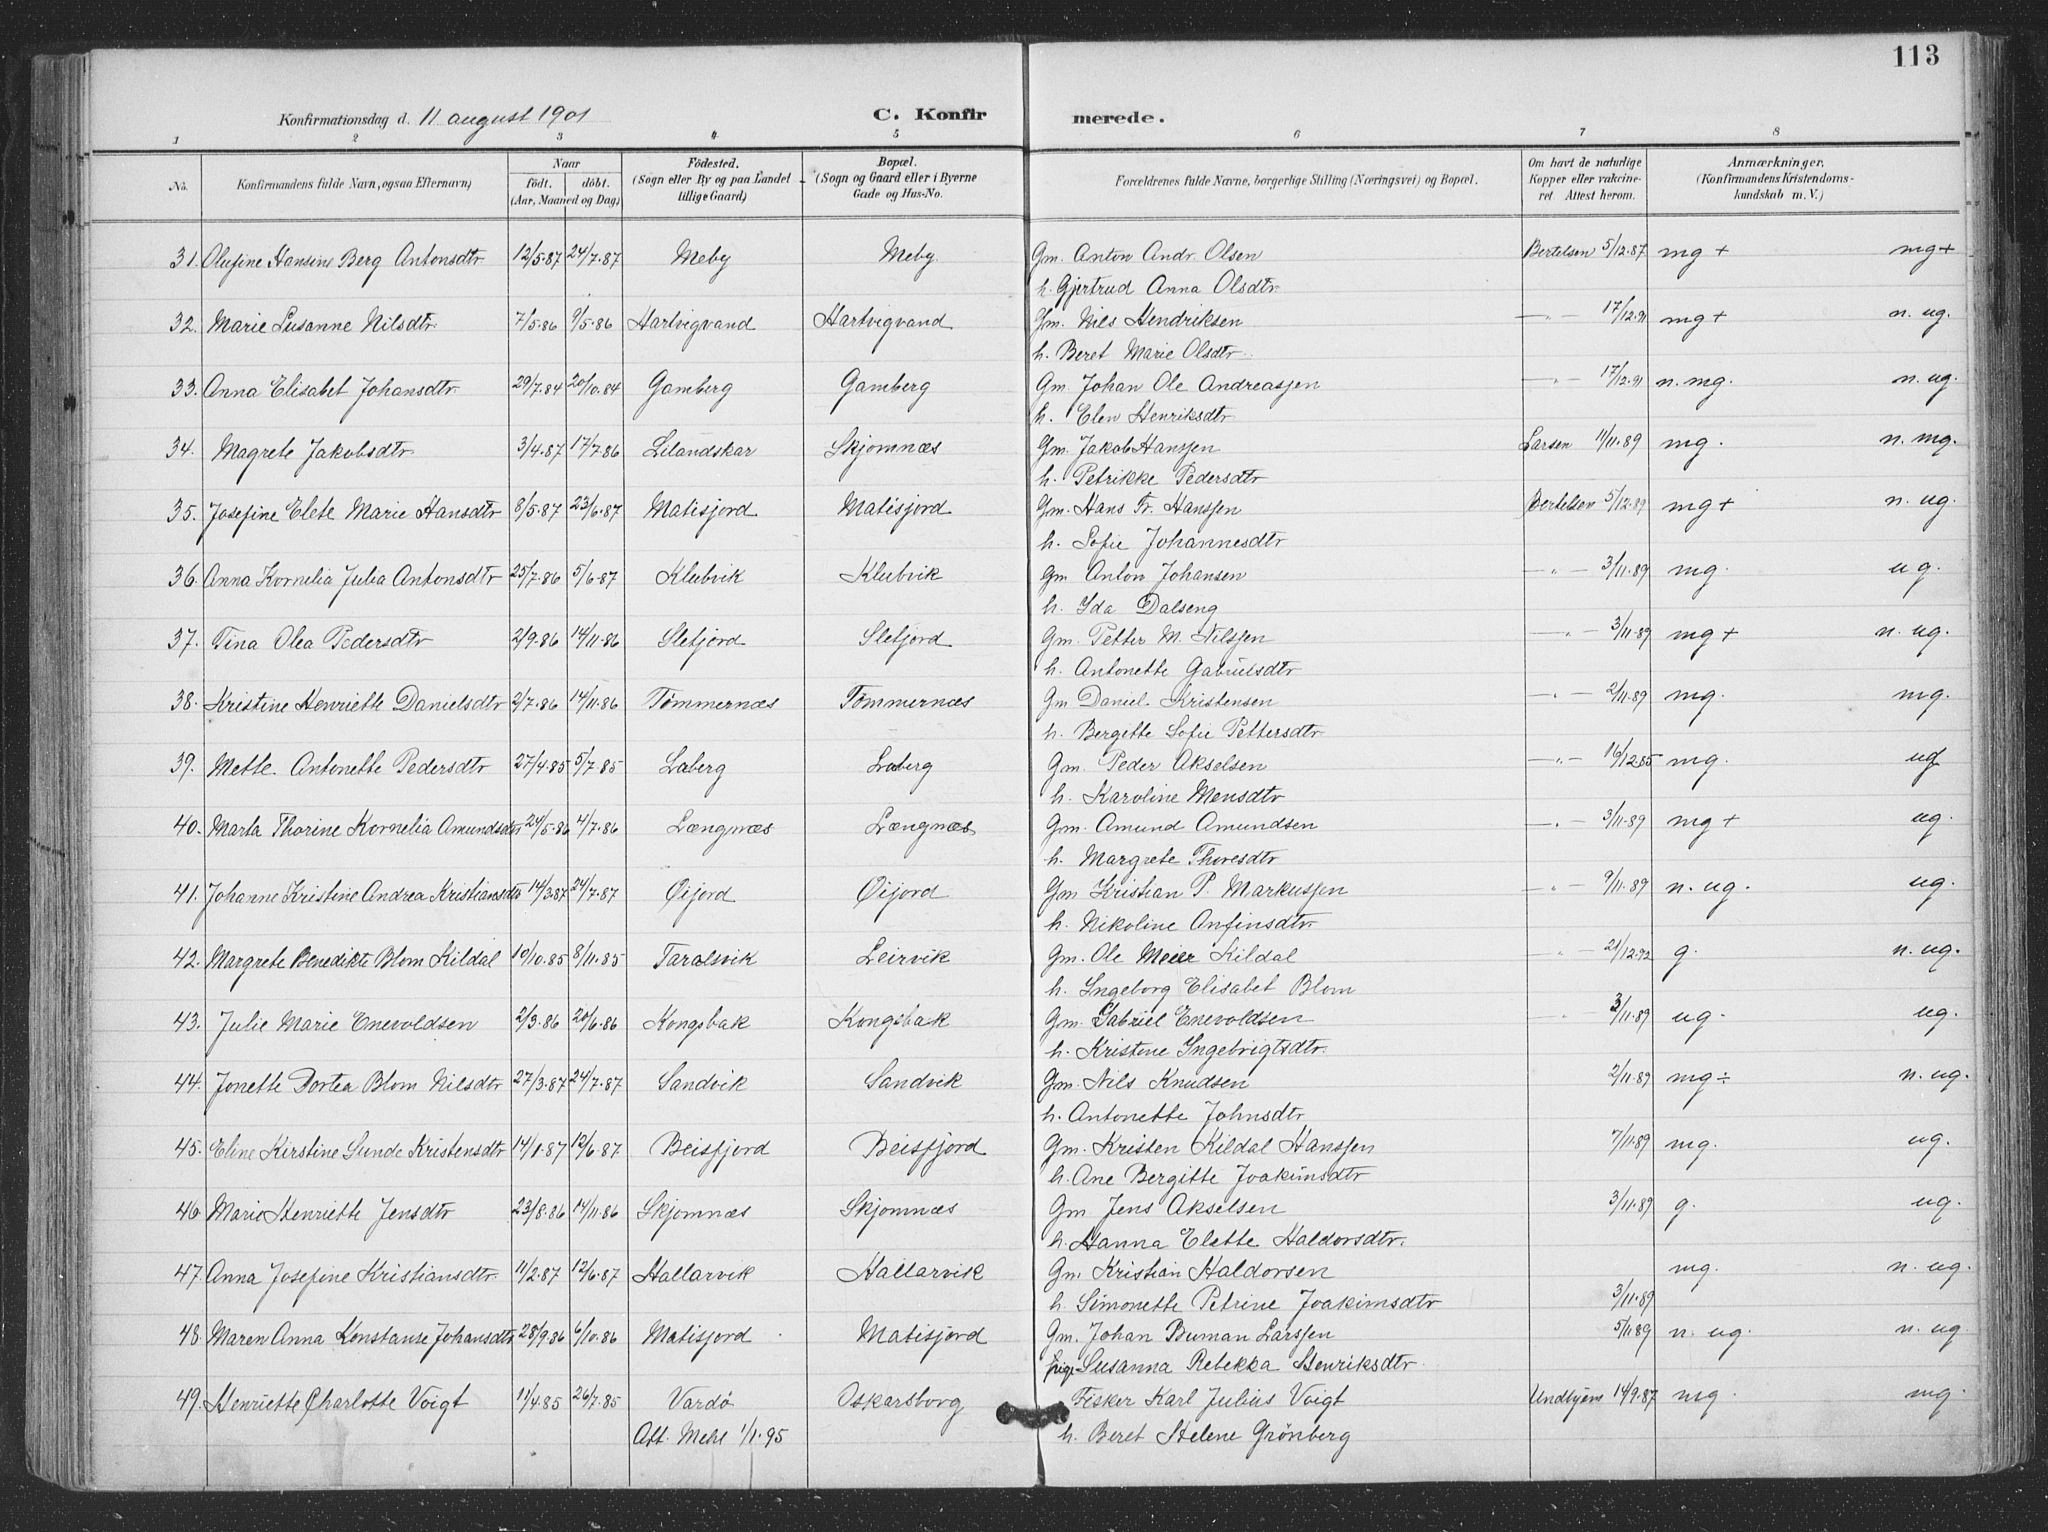 113
Konfirmationsdag d. 11 august 1901 C. Konfir merede.
1 2 3 4 5 6 7 8
No. Konfirmandens fulde Navn, ogsaa Efternavn) Naar födt. döbt. (Aar, Maaned og Dag) Födested. (Sogn eller By og paa Landet tillige Gaard) Bopæl. (Sogn og Gaard eller i Byerne Gade og Hus-No. Forældrenes fulde Navne, borgerlige Stilling (Næringsvei) og Bopæl. Om havt de naturlige Kopper eller vakcineret Attest herom. Anmærkninger. (Konfirmandens Kristendomskundskab m. V.)
31. Olufine Hansine Berg Antonsdtr 12/5.87 24/7.87 Meby Meby. Gm. Anton Andr. Olsen Bertelsen 5/12.87 mg + mg +
h. Gjertrud Anna Olsdtr.
32. Marie Susanne Nilsdtr. 7/5.86 9/5.86 Hartvigvand Hartvigvand Gm. Nils Hendriksen —"— 17/12.91 mg + n. ug.
h. Beret Marie Olsdtr.
33. Anna Elisabet Johansdtr. 29/7.84 20/10.84 Gamberg Gamberg Gm. Johan Ole Andreassen —"— 17/12.91 n. mg. n. ug.
h. Elen Henriksdtr.
34. Magrete Jakobsdtr. 3/4.87 17/7.86 Lilandskar Skjomnæs Gm. Jakob Hanssen Larsen 11/11.89 mg. n. mg.
h. Petrikke Pedersdtr
35. Josefine Elete Marie Hansdtr 8/5.87 23/6.87 Matisjord Matisjord Gm. Hans Fr. Hanssen Bertelsen 5/12.89 mg + n. ug.
h. Sofie Johannesdtr
36. Anna Kornelia Julia Antonsdtr 25/7.86 5/6.87 Klubvik Klubvik Gm Anton Johansen —"— 3/11.89 mg. ug.
h. Ida Dalseng
37. Tina Olea Pedersdtr 2/9.86 14/11.86 Slefjord Slefjord Gm. Petter M. Nilssen —"— 3/11.89 mg + n. ug.
h. Antonette Gabrielsdtr
38. Kristine Henriette Danielsdtr 2/7.86 14/11.86 Tømmernæs Tømmernæs Gm Daniel Kristensen —"— 2/11.89 mg. mg.
h. Bergitte Sofie Pettersdtr.
39. Mette Antonette Pedersdtr 27/4.85 5/7.85 Laberg Laberg Gm. Peder Akselsen —"— 16/12.85 mg. ug
h. Karoline Monsdtr
40. Marta Thorine Kornelia Amundsdtr 24/5.86 4/7.86 Længnæs Længnæs Gm. Amund Amundsen —"— 3/11.89 mg + ug.
h. Margrete Thoresdtr
41. Johanne Kristine Andrea Kristiansdtr 14/3.87 24/7.87 Øijord Øijord Gm Kristian P. Markussen —"— 9/11.89 n. ug. ug.
h. Nikoline Anfinsdtr.
42. Margrete Benedikte Blom Kildal 10/10.85 8/11.85 Taralsvik Leirvik Gm. Ole Meier Kildal —"— 21/12.92 g. n. ug.
h. Ingeborg Elisabet Blom
43. Julie Marie Enevoldsen 2/3.86 20/6.86 Kongsbak Kongsbak Gm. Gabriel Enevoldsen —"— 3/11.89 ug. ug.
h. Kristine Ingebrigtsdtr.
44. Jonette Dortea Blom Nilsdtr 27/3.87 24/7.87 Sandvik Sandvik Gm. Nils Knudsen 2/11.89 mg ÷ n. ug.
h. Antonette Johnsdtr
45. Eline Kirstine Sunde Kristensdtr 14/1.87 12/6.87 Beisfjord Beisfjord Gm. Kristen Kildal Hanssen 7/11.89 mg. ug.
h. Ane Bergitte Joakimsdtr
46. Marie Henriette Jensdtr 23/8.86 14/11.86 Skjomnæs Skjomnæs Gm Jens Akselsen 3/11.89 g. ug.
h. Hanna Elette Haldorsdtr.
47. Anna Josefine Kristiansdtr. 11/2.87 12/6.87 Hallarvik Hallarvik Gm Kristian Haldorsen mg. n. ug.
h. Simonette Petrine Joakimsdtr 3/11.89
48. Maren Anna Konstanse Johansdtr 28/9.86 6/10.86 Matisjord Matisjord Gm. Johan Buman Larssen 5/11.89 n. ug. n. ug.
Susanna Rebekka Henriksdtr.
49. Henriette Charlotte Voigt 11/4.85 26/7.85 Vardø Oskarsborg Fisker Karl Julius Voigt 14/9.87 mg. mg.
Att. Mehl 1/1.95 h. Beret Helene Grönberg